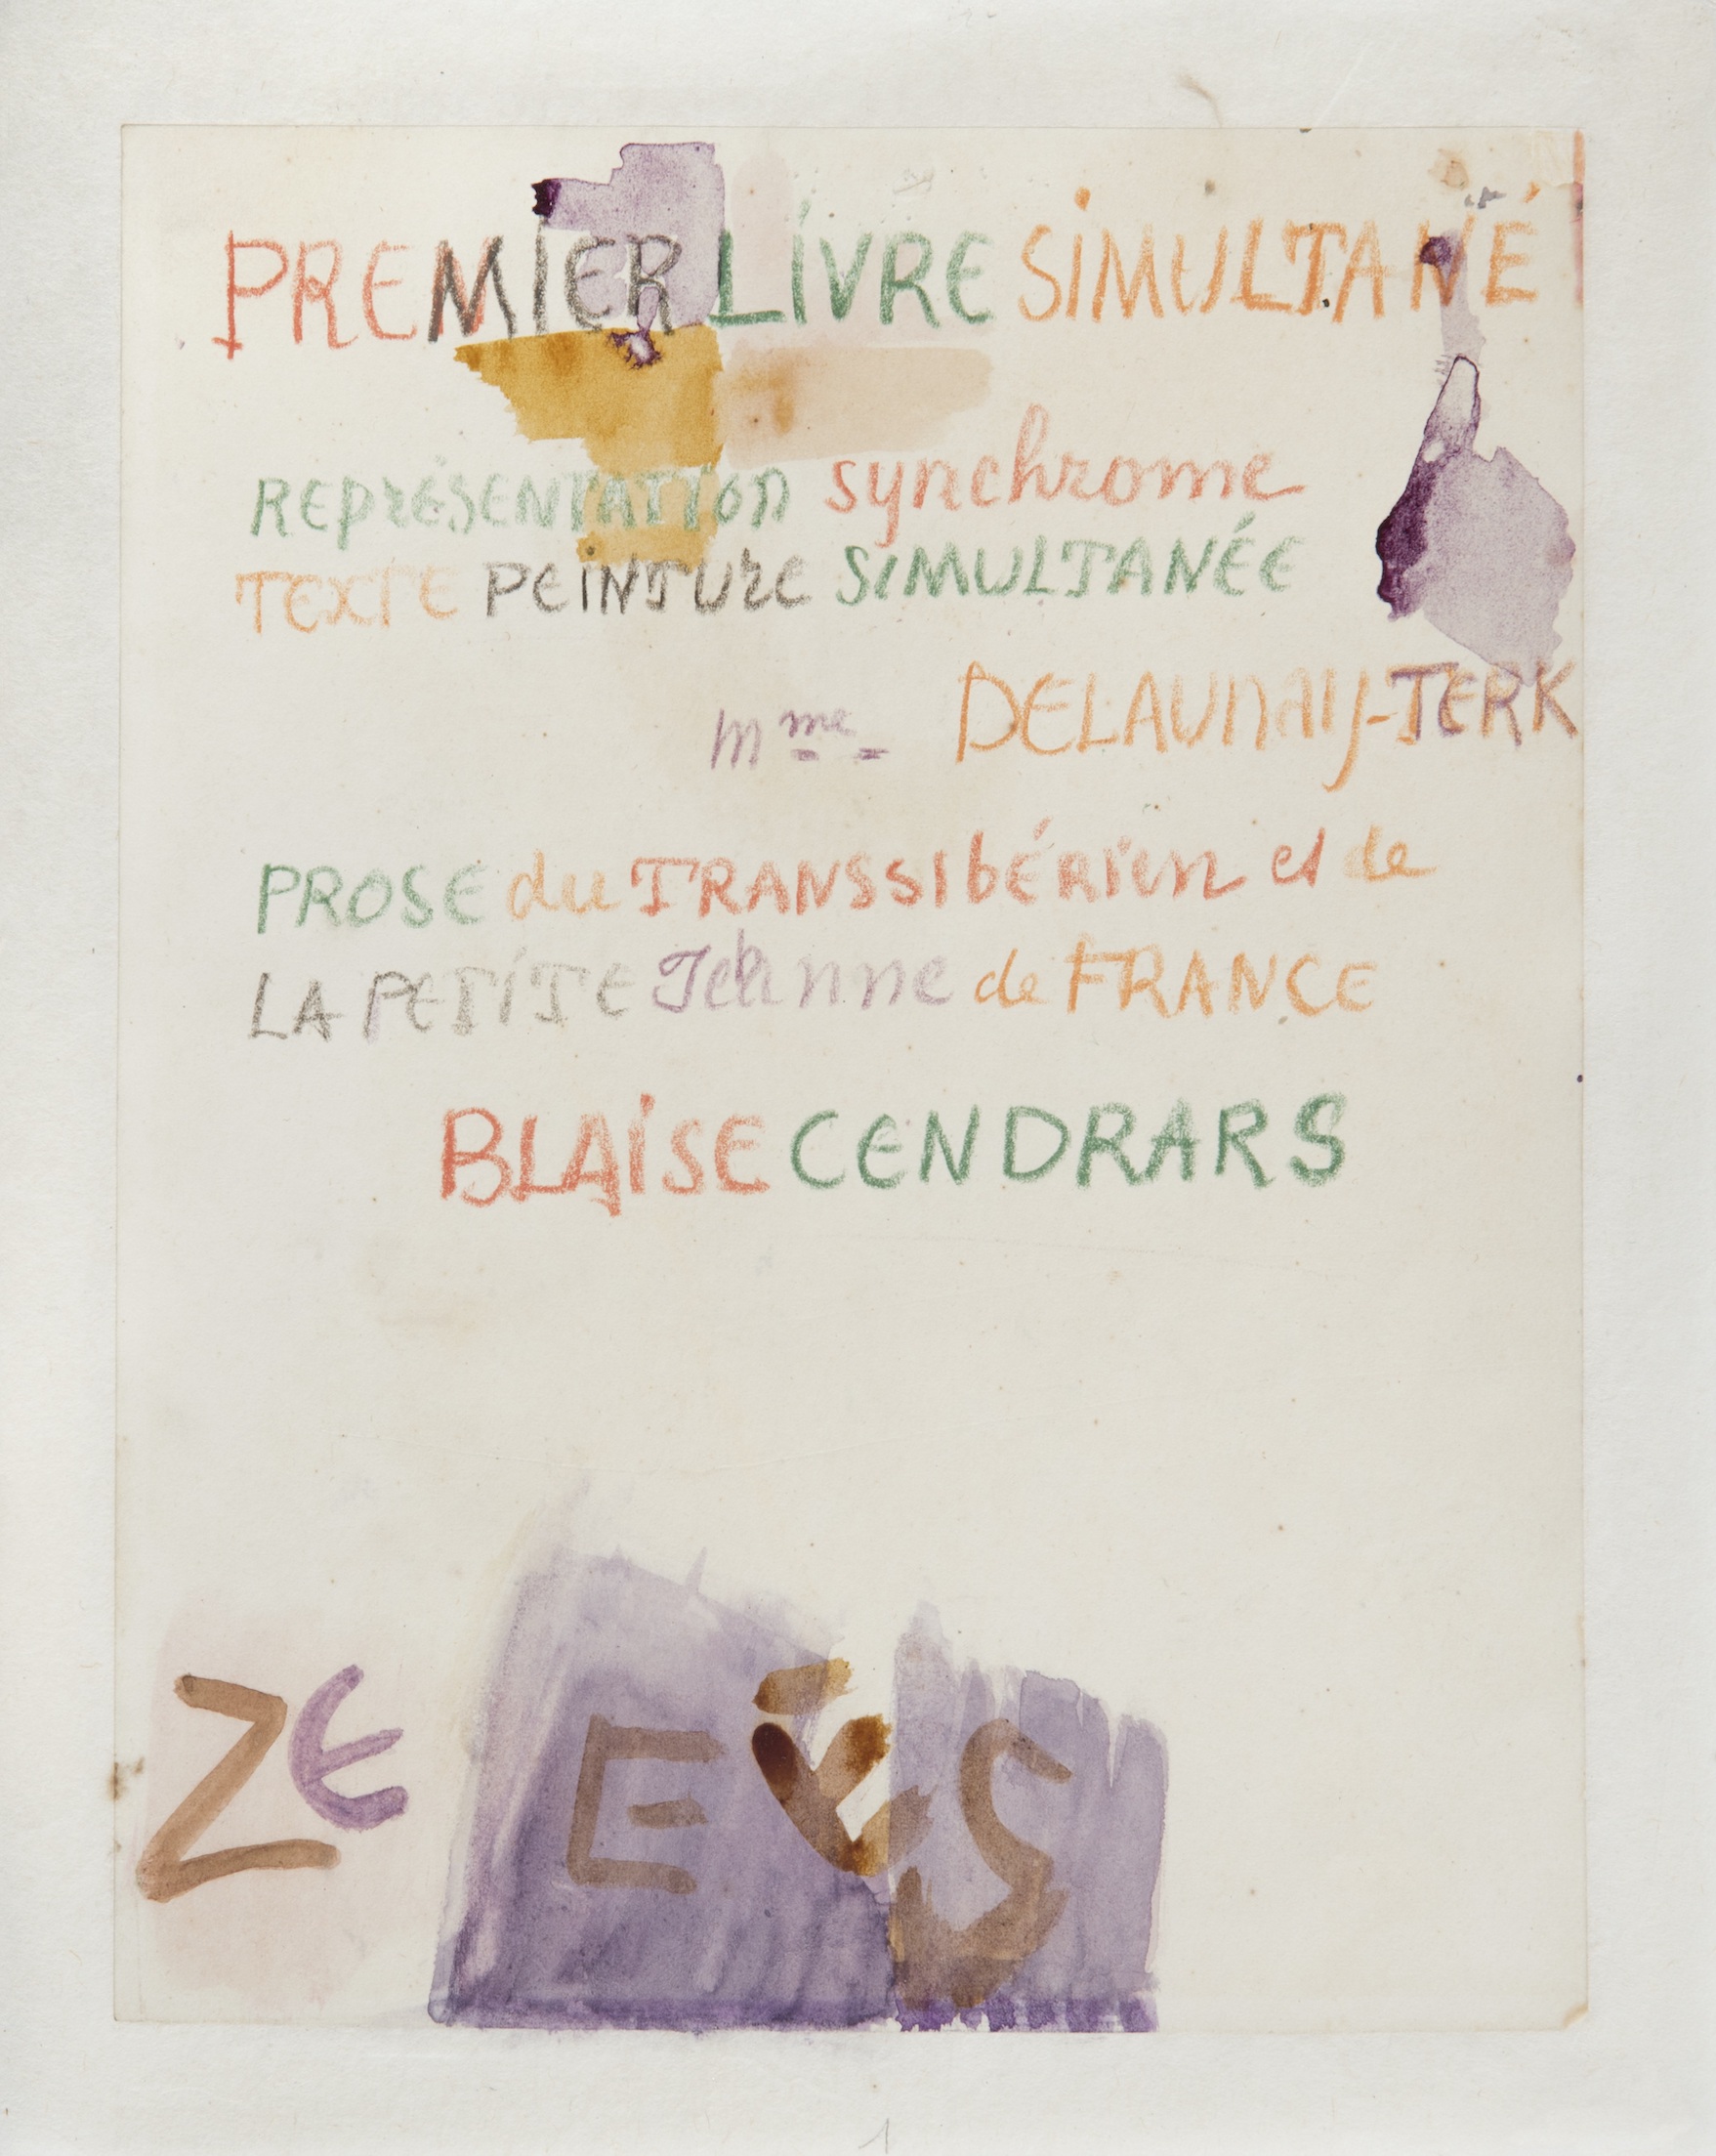 PREMIER LIVRE SIMULTANÉ
REPRÉSENTATION synchrome
TEXTE PEINTURE SIMULTANÉE
Mme DELAUNAY-TERK
PROSE du TRANSSIBÉRIEN et de
LA PETITE Jehanne de FRANCE
BLAISE CENDRARS
ZE
1